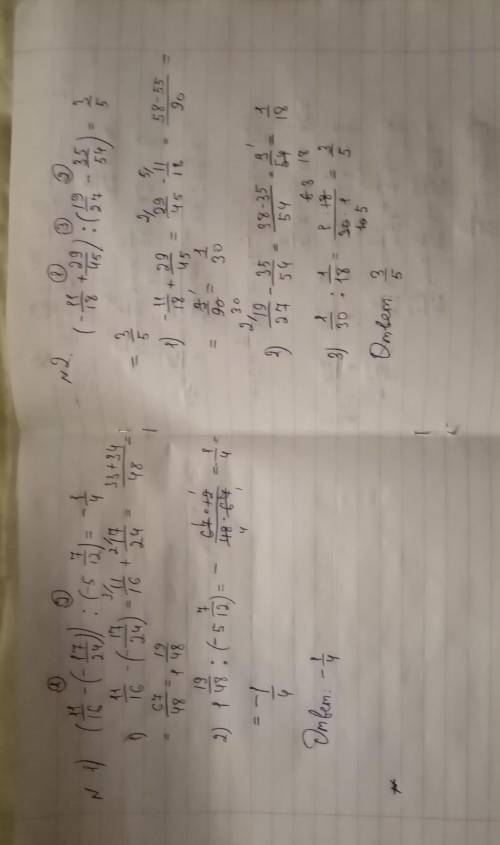 N 1) (11/16 - (-17/24)) : (-5 7/12) = -1/4
1) 11/16 - (-17/24) = 11/16 + 17/24 = (33+34)/48 =
= 67/48 = 1 19/48
2) 1 19/48 : (-5 7/12) = - (67·12)/(48·67) = -1/4 =
= -1/4
Ответ: -1/4
N2. (-11/18 + 29/45) : (19/27 - 35/54) = 3/5
= 3/5
1) -11/18 + 29/45 = 29/45 - 11/18 = (58-55)/90 =
= 3/90 = 1/30
2) 19/27 - 35/54 = (38-35)/54 = 3/54 = 1/18
3) 1/30 : 1/18 = (1·18)/(30·1) = 3/5
Ответ: 3/5